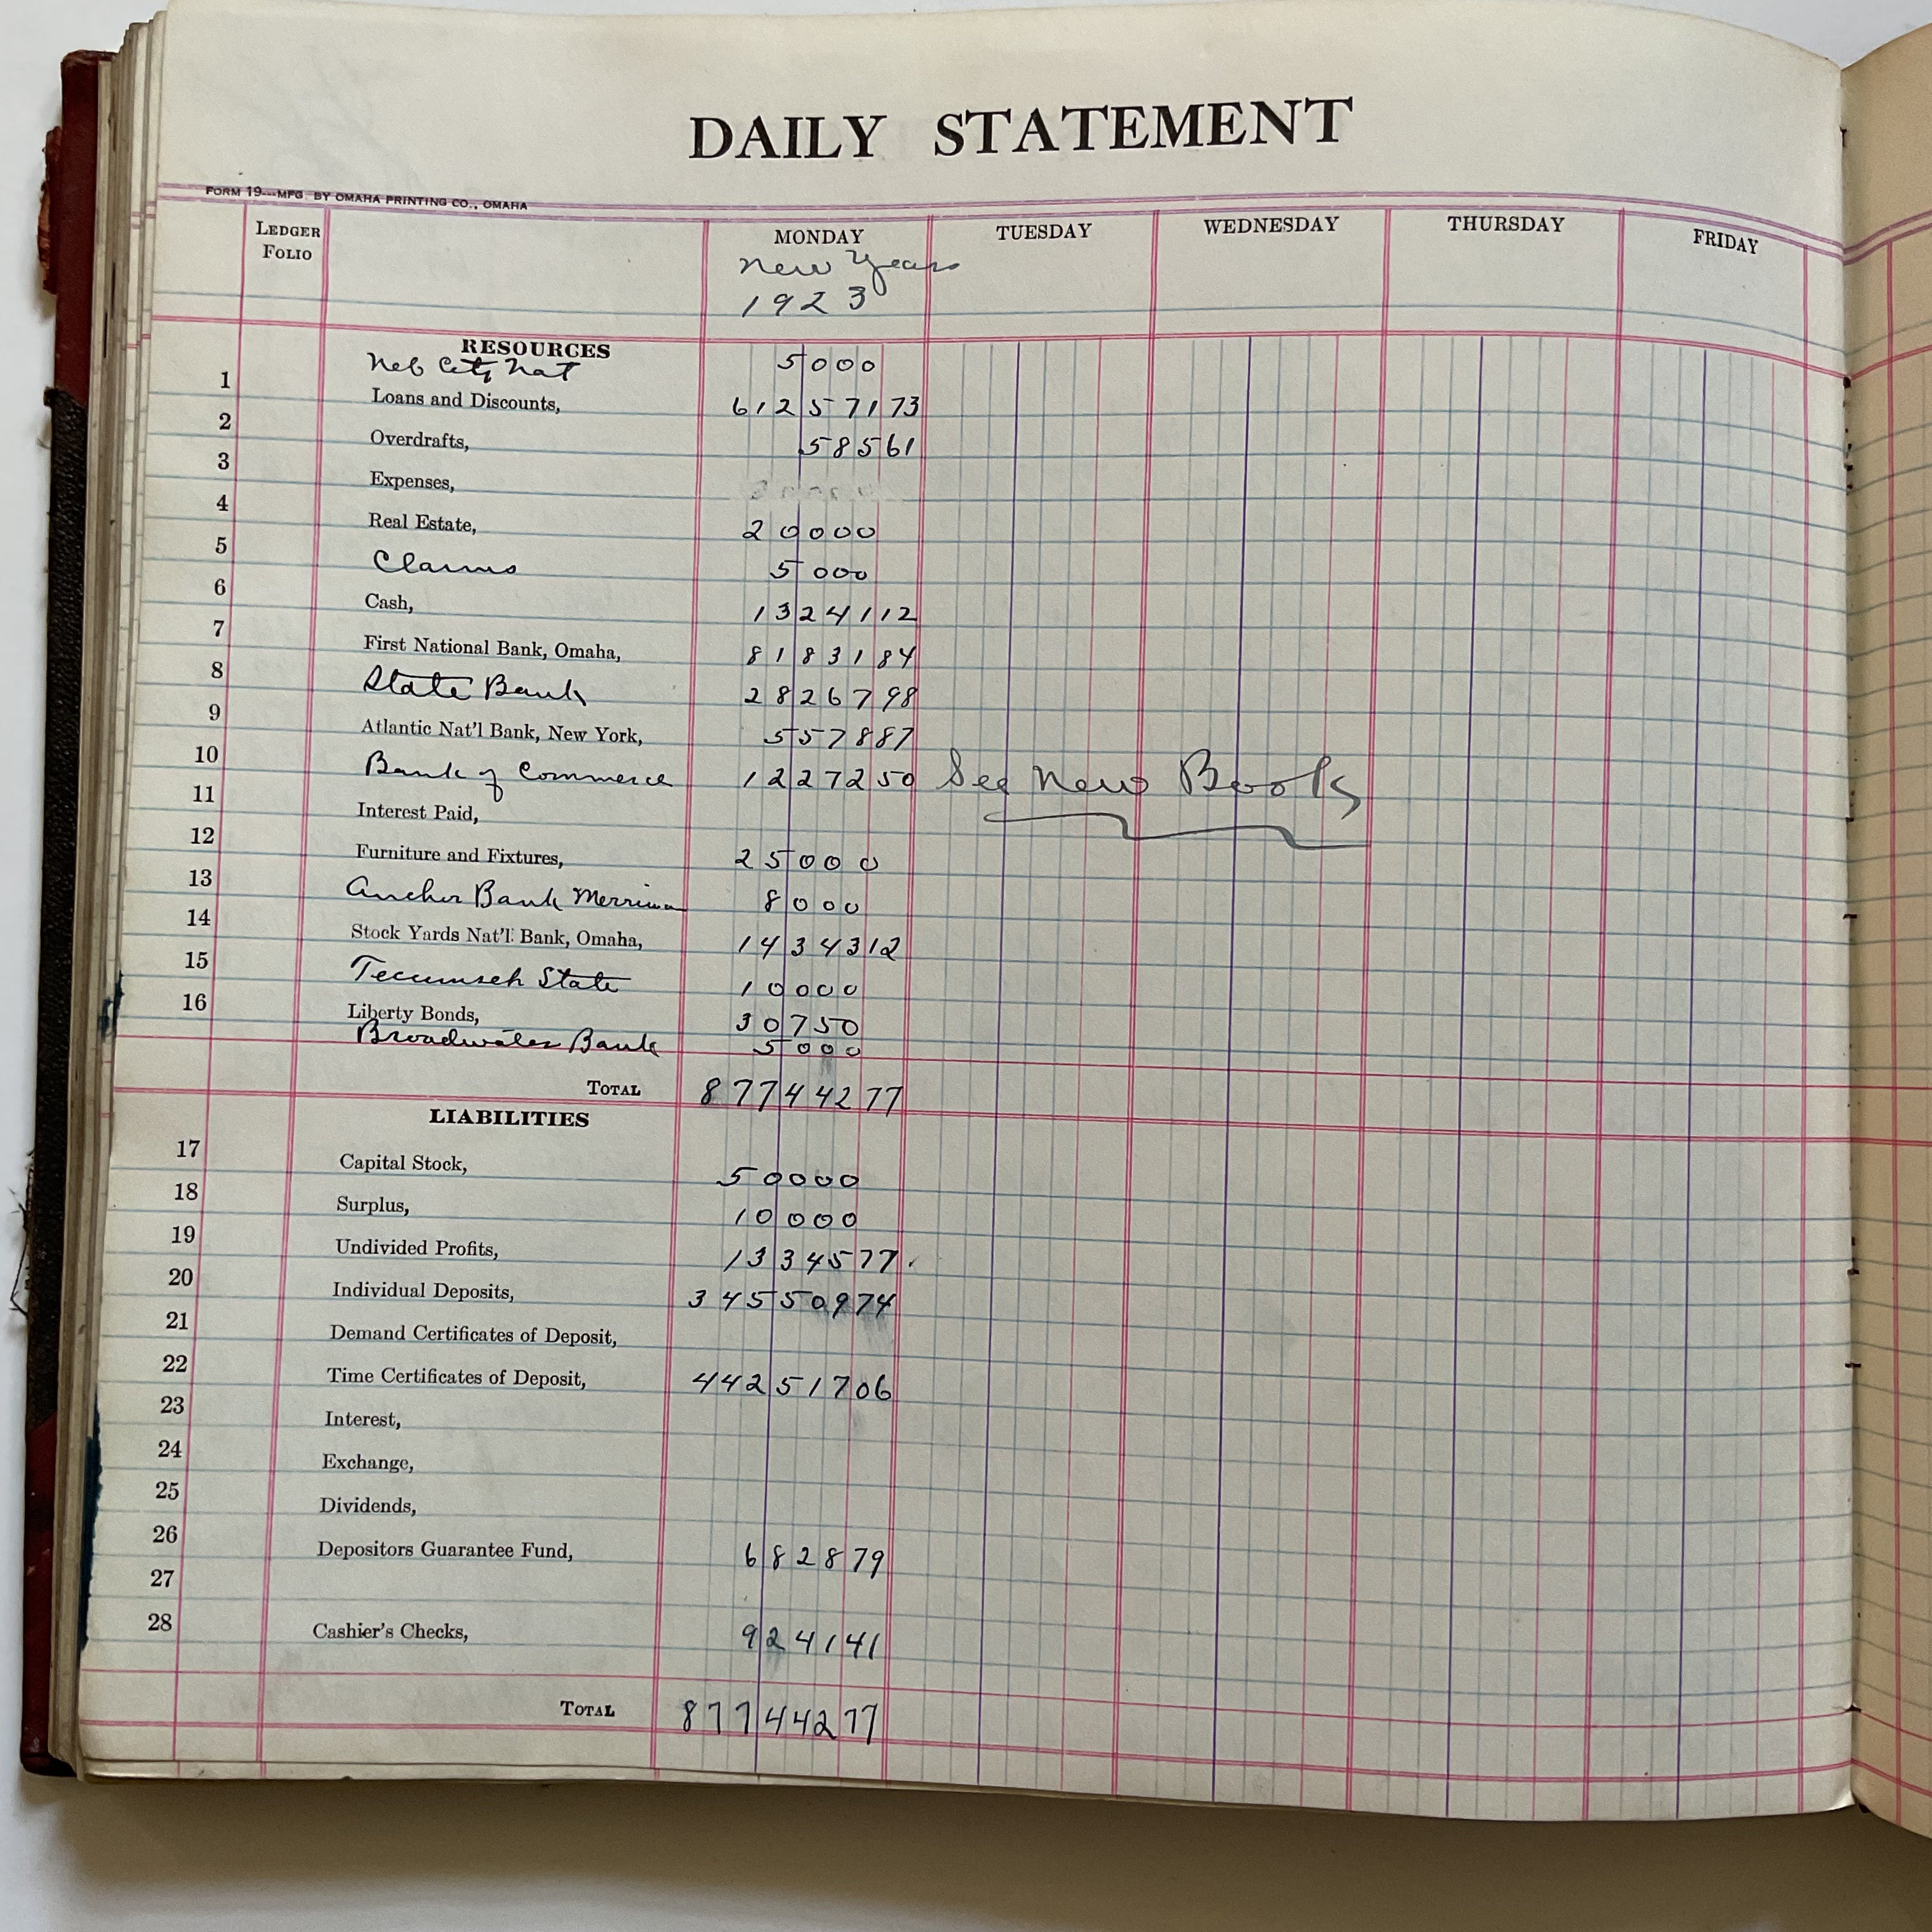 DAILY STATEMENT
FORM 19---MFG. BY OMAHA PRINTING CO., OMAHA
LEDGER FOLIO MONDAY TUESDAY WEDNESDAY THURSDAY FRIDAY
New Years
1923
RESOURCES
Neb City Nat 5000
1 Loans and Discounts, 612571 73
2 Overdrafts, 585 61
3 Expenses,
4 Real Estate, 20000
5 Claims 5000
6 Cash, 13241 12
7 First National Bank, Omaha, 81831 84
8 State Bank 28267 98
9 Atlantic Nat'l Bank, New York, 5578 87
10 Bank of Commerce 12272 50 See New Book
11 Interest Paid,
12 Furniture and Fixtures, 25000
13 Anchor Bank Merriman 8000
14 Stock Yards Nat'l Bank, Omaha, 14343 12
15 Tecumseh State 10000
16 Liberty Bonds, 30750
Broadwater Bank 5000
TOTAL 877442 77
LIABILITIES
17 Capital Stock, 50000
18 Surplus, 10000
19 Undivided Profits, 13345 77
20 Individual Deposits, 345509 74
21 Demand Certificates of Deposit,
22 Time Certificates of Deposit, 442517 06
23 Interest,
24 Exchange,
25 Dividends,
26 Depositors Guarantee Fund, 6828 79
27
28 Cashier's Checks, 9241 41
TOTAL 877442 77